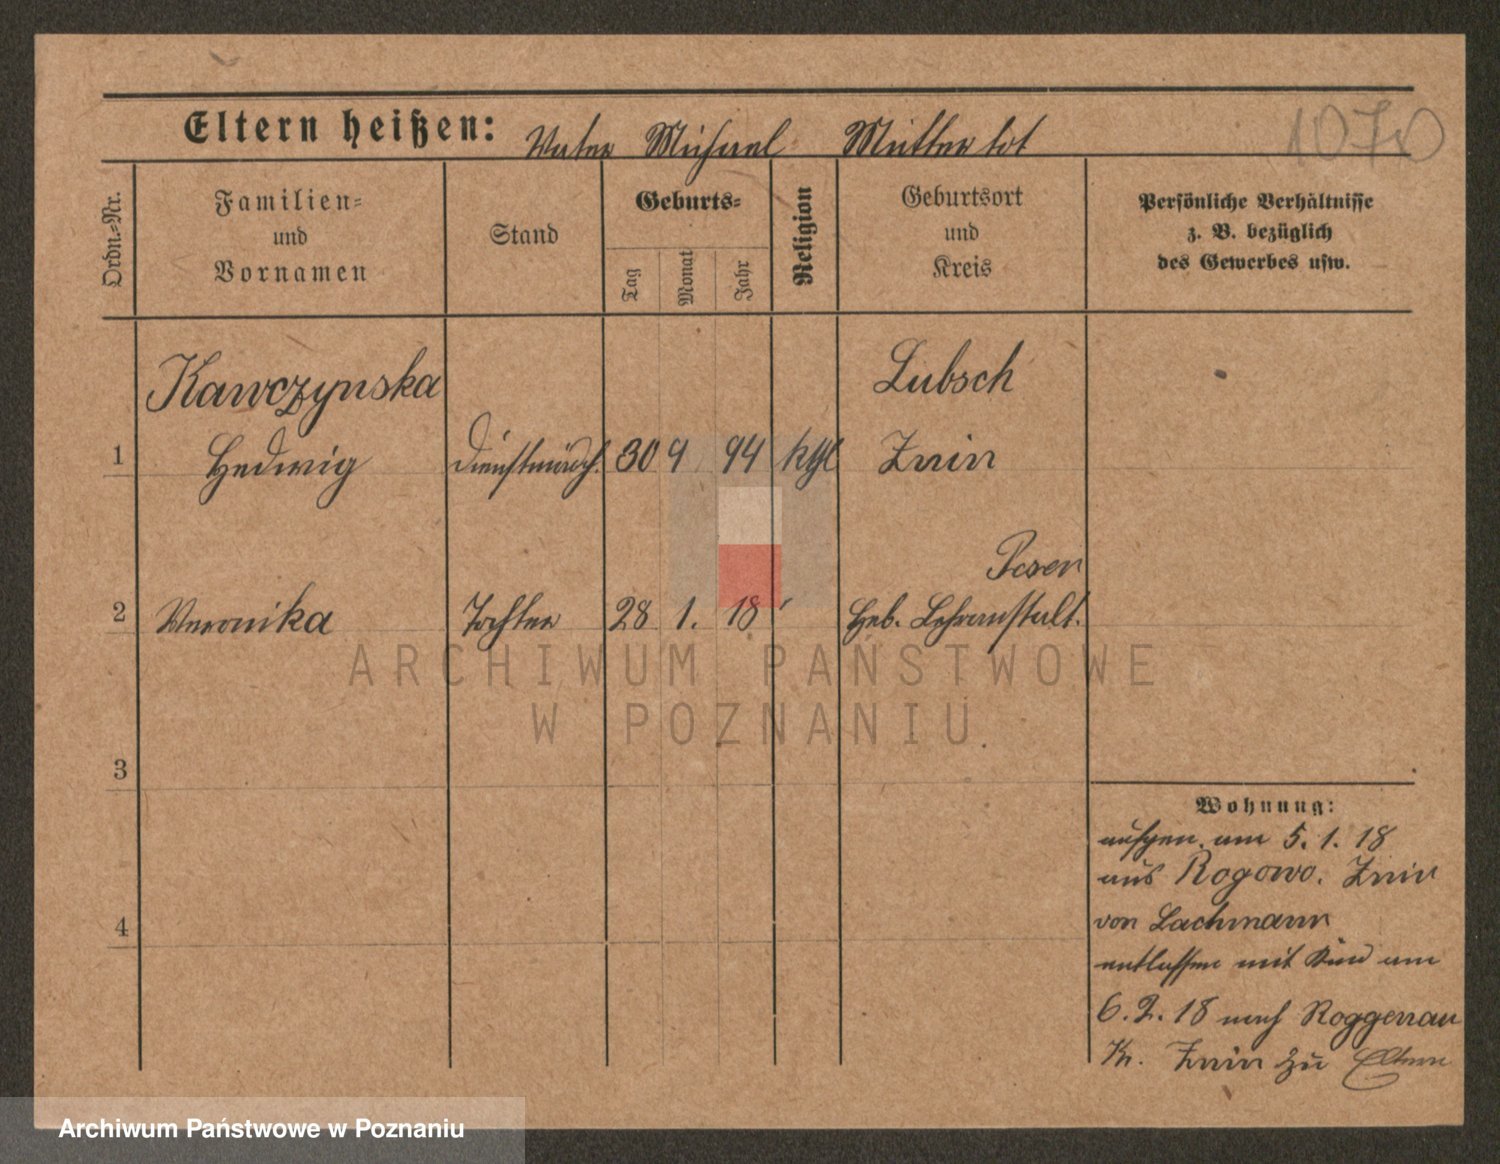 Eltern heißen: Vater Michael Mutter tot
1070
Ordn.-Nr.
Familien-
und
Vornamen
Stand
Geburts-
Tag
Monat
Jahr
Religion
Geburtsort
und
Kreis
Persönliche Verhältnisse
z. B. bezüglich
des Gewerbes usw.
Kawczynska
Lubsch
1 Hedwig Dienstmädch. 30 9 94 kath Znin
Posen
2 Veronika Tochter 28 1. 18 Heb. Lehranstalt.
3
4
Wohnung:
aufgen. am 5.1.18
aus Rogowo. Znin
von Lachmann
entlassen mit Kind am
6.2.18 nach Roggenau
Kr. Znin zu Eltern
ARCHIWUM PAŃSTWOWE
W POZNANIU
Archiwum Państwowe w Poznaniu